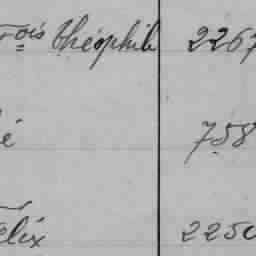 ois théophile 2267
é 758
élix 2250